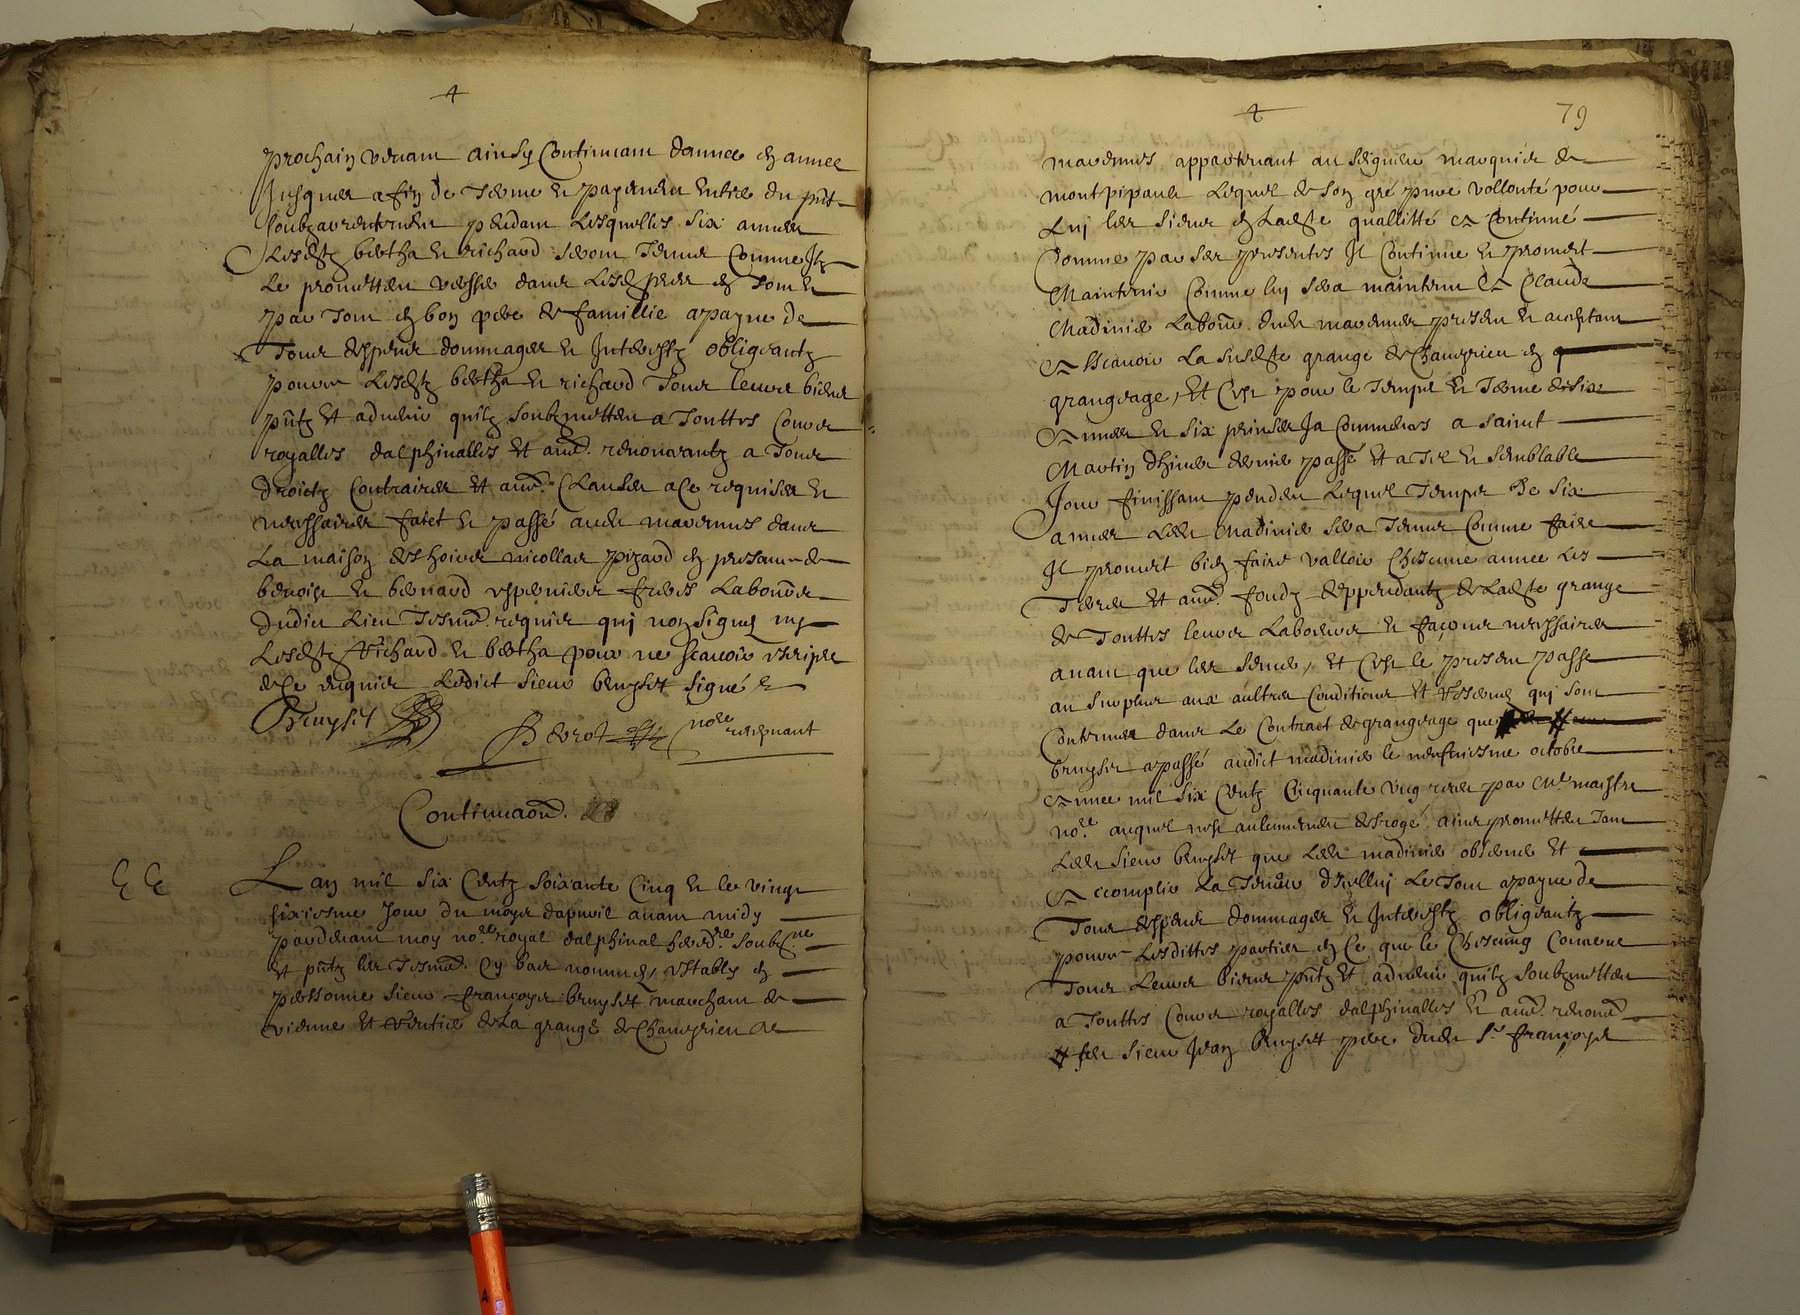 prochain venant ainsy continuant dannee en annee
Jusques a fin de terme et payement entier du pnt
soubz arrentement pendant lesquelles six annees
Lesdtz bertha et richard seront tenus comme Ilz
le promettent dans
par tout en bon pere de famillie a payne de
Tous despens dommages et Interestz obligeantz
pour ce Lesdtz bertha et richard Tous leurs biens
pntz et advenir quilz soubzmettent a Touttes Cours
royalles dalphinalles et aues. renonceantz a Tous
droictz Contraires et aues. Clauses a Ce requises et
necessaires faict et passé audit marennes dans
La maison des hoirs nicollas pizard en presance de
benoist et bernard freres Laboure.
dudict Lieu Tesmo. requis qui nont signé ny
Lesdtz Richard et bertha pour ne scavoir escripre
de Ce enquis Ledict sieur bruyset signé et
Bruyset nore recepvant
Continuaon.
Lan mil six Centz soixante Cinq et le vingt
sixiesme Jour du moys dapvril avant midy
pardevant moy nore. royal dalphinal heredre. soubzne
et pntz les Tesmo. cy bas nommes, estably en
personne sieur françoys bruyset marchant de
vienne et rentier de La grange de Chameyrieu de
79
marennes appartenant au seigneur marquis de
montpipault Lequel de son gré pure vollonté pour
Luy les siens en Ladte quallitté a Continué
Comme par ses presentes Il Continue et promet
Maintenir Comme luy sera maintenu A Claude
Madinier Laboure. dudit marennes present et acceptant
A Scavoir La susdte grange de Chameyrieu en
grangeage, Et Cest pour le Temps et Terme de six
Annees et six prinses Ja Commencés a saint
Martin dhiver dernier passé et a Tel et semblable
Jour finissant pendent Lequel Temps de six
annees Ledt Madinier sera Tenus Comme faire
Il promet bien faire valloir Chescune annee Les
Terres et aues. fondz deppendantz de Ladte grange
de Touttes leurs Labeures et façons necessaires
avant que les semer, Et Cest le present passé
au surplus aux aultres Conditions et reserves qui sont
Contenues dans Le Contract de grangeage que
bruyset a passé audict madinier le neufviesme octobre
Annee mil six Centz Cinquante ung receu par Me maistre
nore. auquel nest aulcunement desrogé ains promettent Tant
Ledt sieur bruyset que Ledt madinier observer Et
Accomplir La Teneur dicelluy Le Tout a payne de
Tous despens dommages et Interestz obligeantz
pour ce Lesdittes parties en Ce que le Chescung Concerne
Tous Leurs biens pntz Et advenir quilz soubzmettent
a Touttes Cours royalles dalphinalles Et aues. renonce.
# feu sieur Jean bruyset pere dudt Sr. françoys